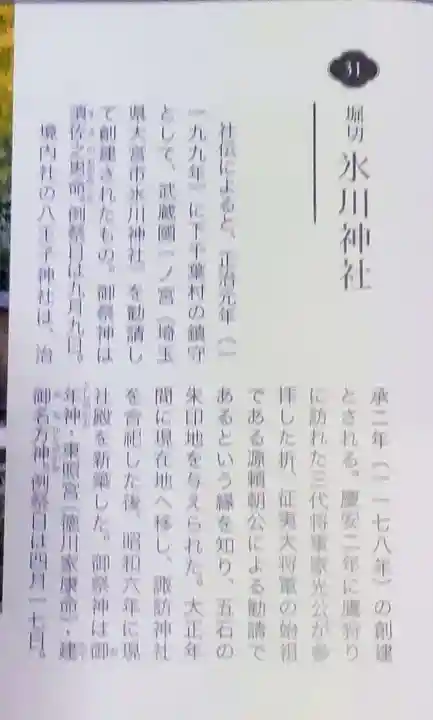 31
堀切 氷川神社
社伝によると、正治元年（一
一九九年）に下千葉村の鎮守
として、武蔵國一ノ宮（埼玉
県大宮市氷川神社）を勧請し
て創建されたもの。御祭神は
須佐之男命。例祭日は九月九日。
境内社の八王子神社は、治
承二年（一一七八年）の創建
とされる。慶安二年に鷹狩り
に訪れた三代将軍家光公が参
拝した折、征夷大将軍の始祖
である源頼朝公による勧請で
あるという縁を知り、五石の
朱印地を与えられた。大正年
間に現在地へ移し、諏訪神社
を合祀した後、昭和六年に現
社殿を新築した。御祭神は御
年神・東照宮（徳川家康命）・建
御名方神。例祭日は四月一七日。